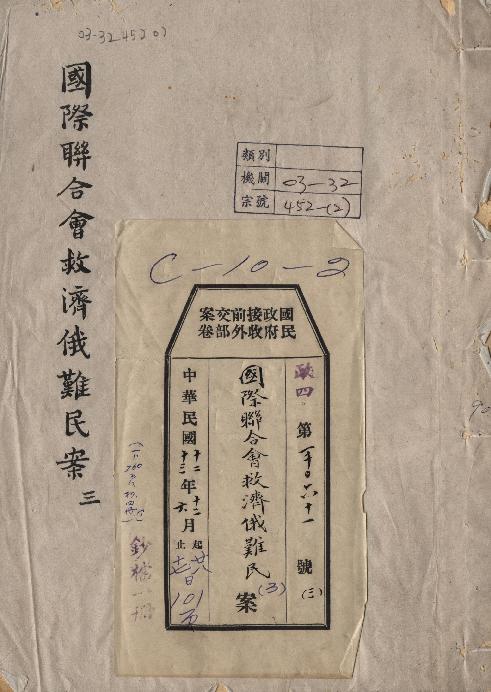 03-32 452 02
國際聯合會救濟俄難民案
三
類別
機關 03-32
宗號 452-(2)
C-10-2
國民政府接收前外交部案卷
歐四
第
六十一
號
(三)
國際聯合會救濟俄難民
(3)
案
中華民國
十二年十二月
十三
六
起
止
廿八
日
101
頁
鈔檔一冊